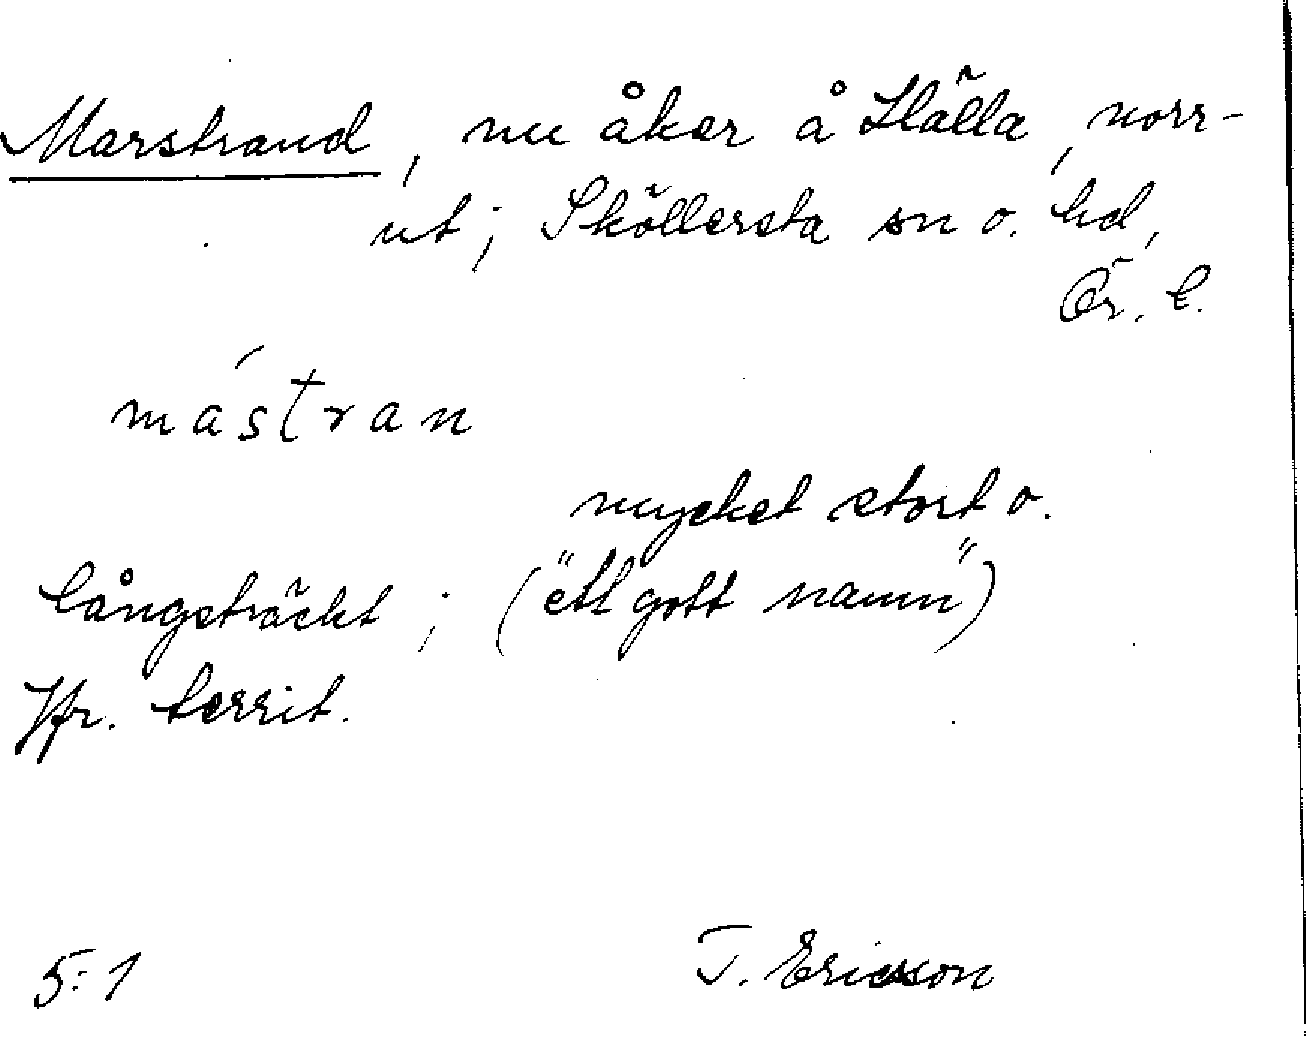 Marstrand, nu åker å Hälla, norr-
ut; Sköllersta sn o. hd,
Ör. l.
mástran
mycket stort o.
långsträckt; ("ett gott namn")
Jfr. territ.
5:1 T. Ericsson